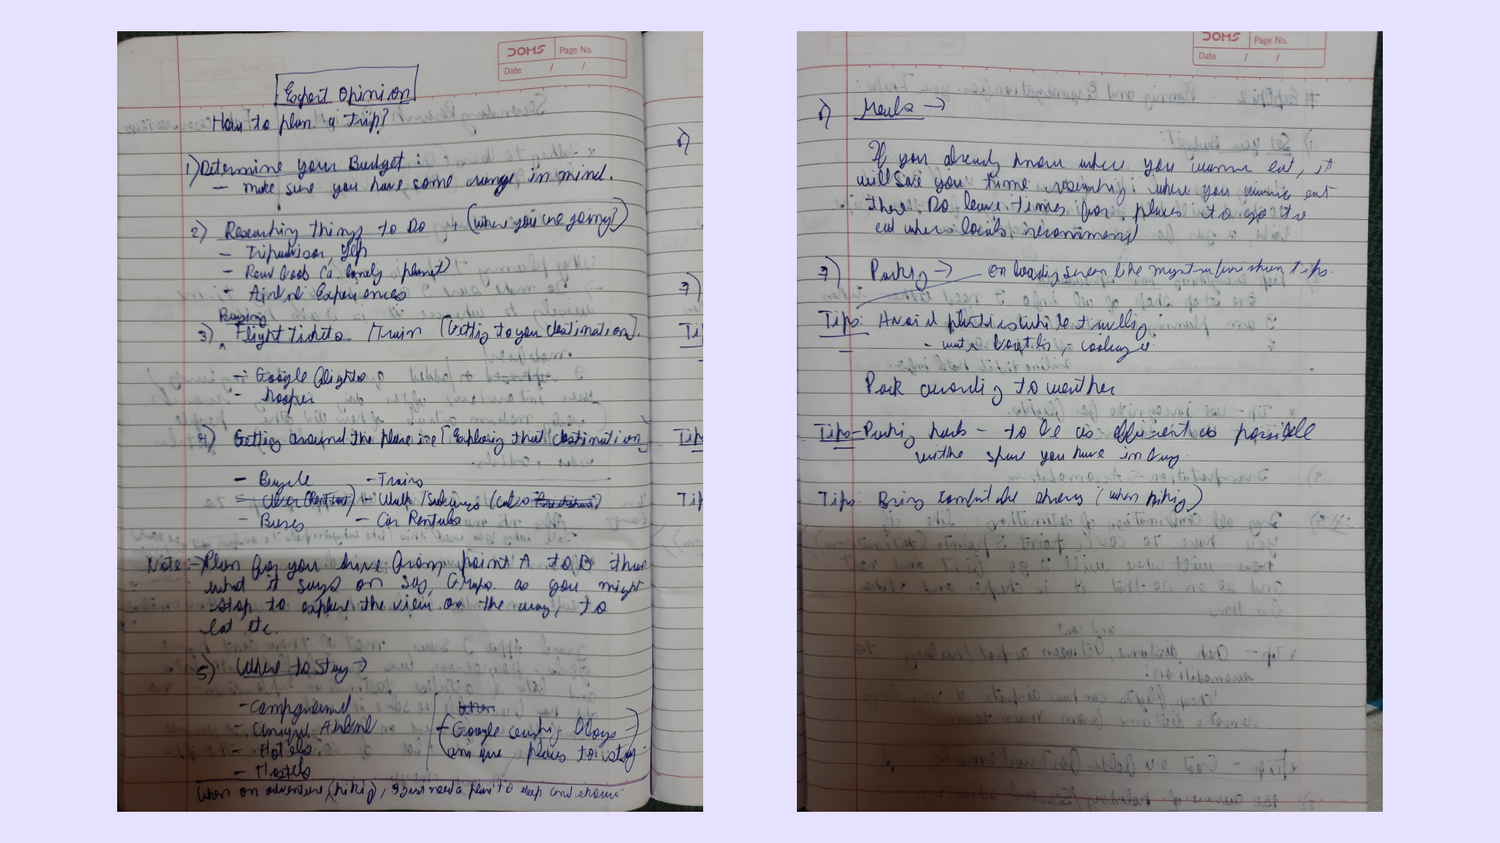 DOMS Page No.
Date / /
Expert Opinion
How to plan a Trip?
1) Determine your Budget :
– make sure you have some range in mind.
2) Researching things to Do (where you are going?)
– Tripadvisor, Yelp
– Read books (a lonely planet)
– Airbnb Experiences
Buying
3) Flight Tickets / Train (Getting to you destination).
– Google flights
– hopper
4) Getting around the place ie [Exploring that destination
– Bicycle – Trains
– Walk / Subways
– Buses – Car Rentals
Note :– Plan for you drive from point A to B than
what it says on Maps as you might
stop to explore the view on the way, to
eat etc.
5) Where to Stay →
– Campground
– Airbnb
– Hotels
– Hostels
(Google Blogs
unique places to stay)
When on adventure (hiking), just need a place to sleep and
DOMS Page No.
Date / /
6) Meals →
If you already know where you wanna eat, it
will save you time researching where you wanna eat
there. Do leave times for places to go to
eat where locals recommend
7) Packing → on loading screen like tips.
Tips: Avoid plastics while travelling
– water bottles,
Pack according to weather
Tips – Packing hacks – to be as efficient as possible
with the space you have in bag.
Tips: Bring comfortable shoes (when hiking)